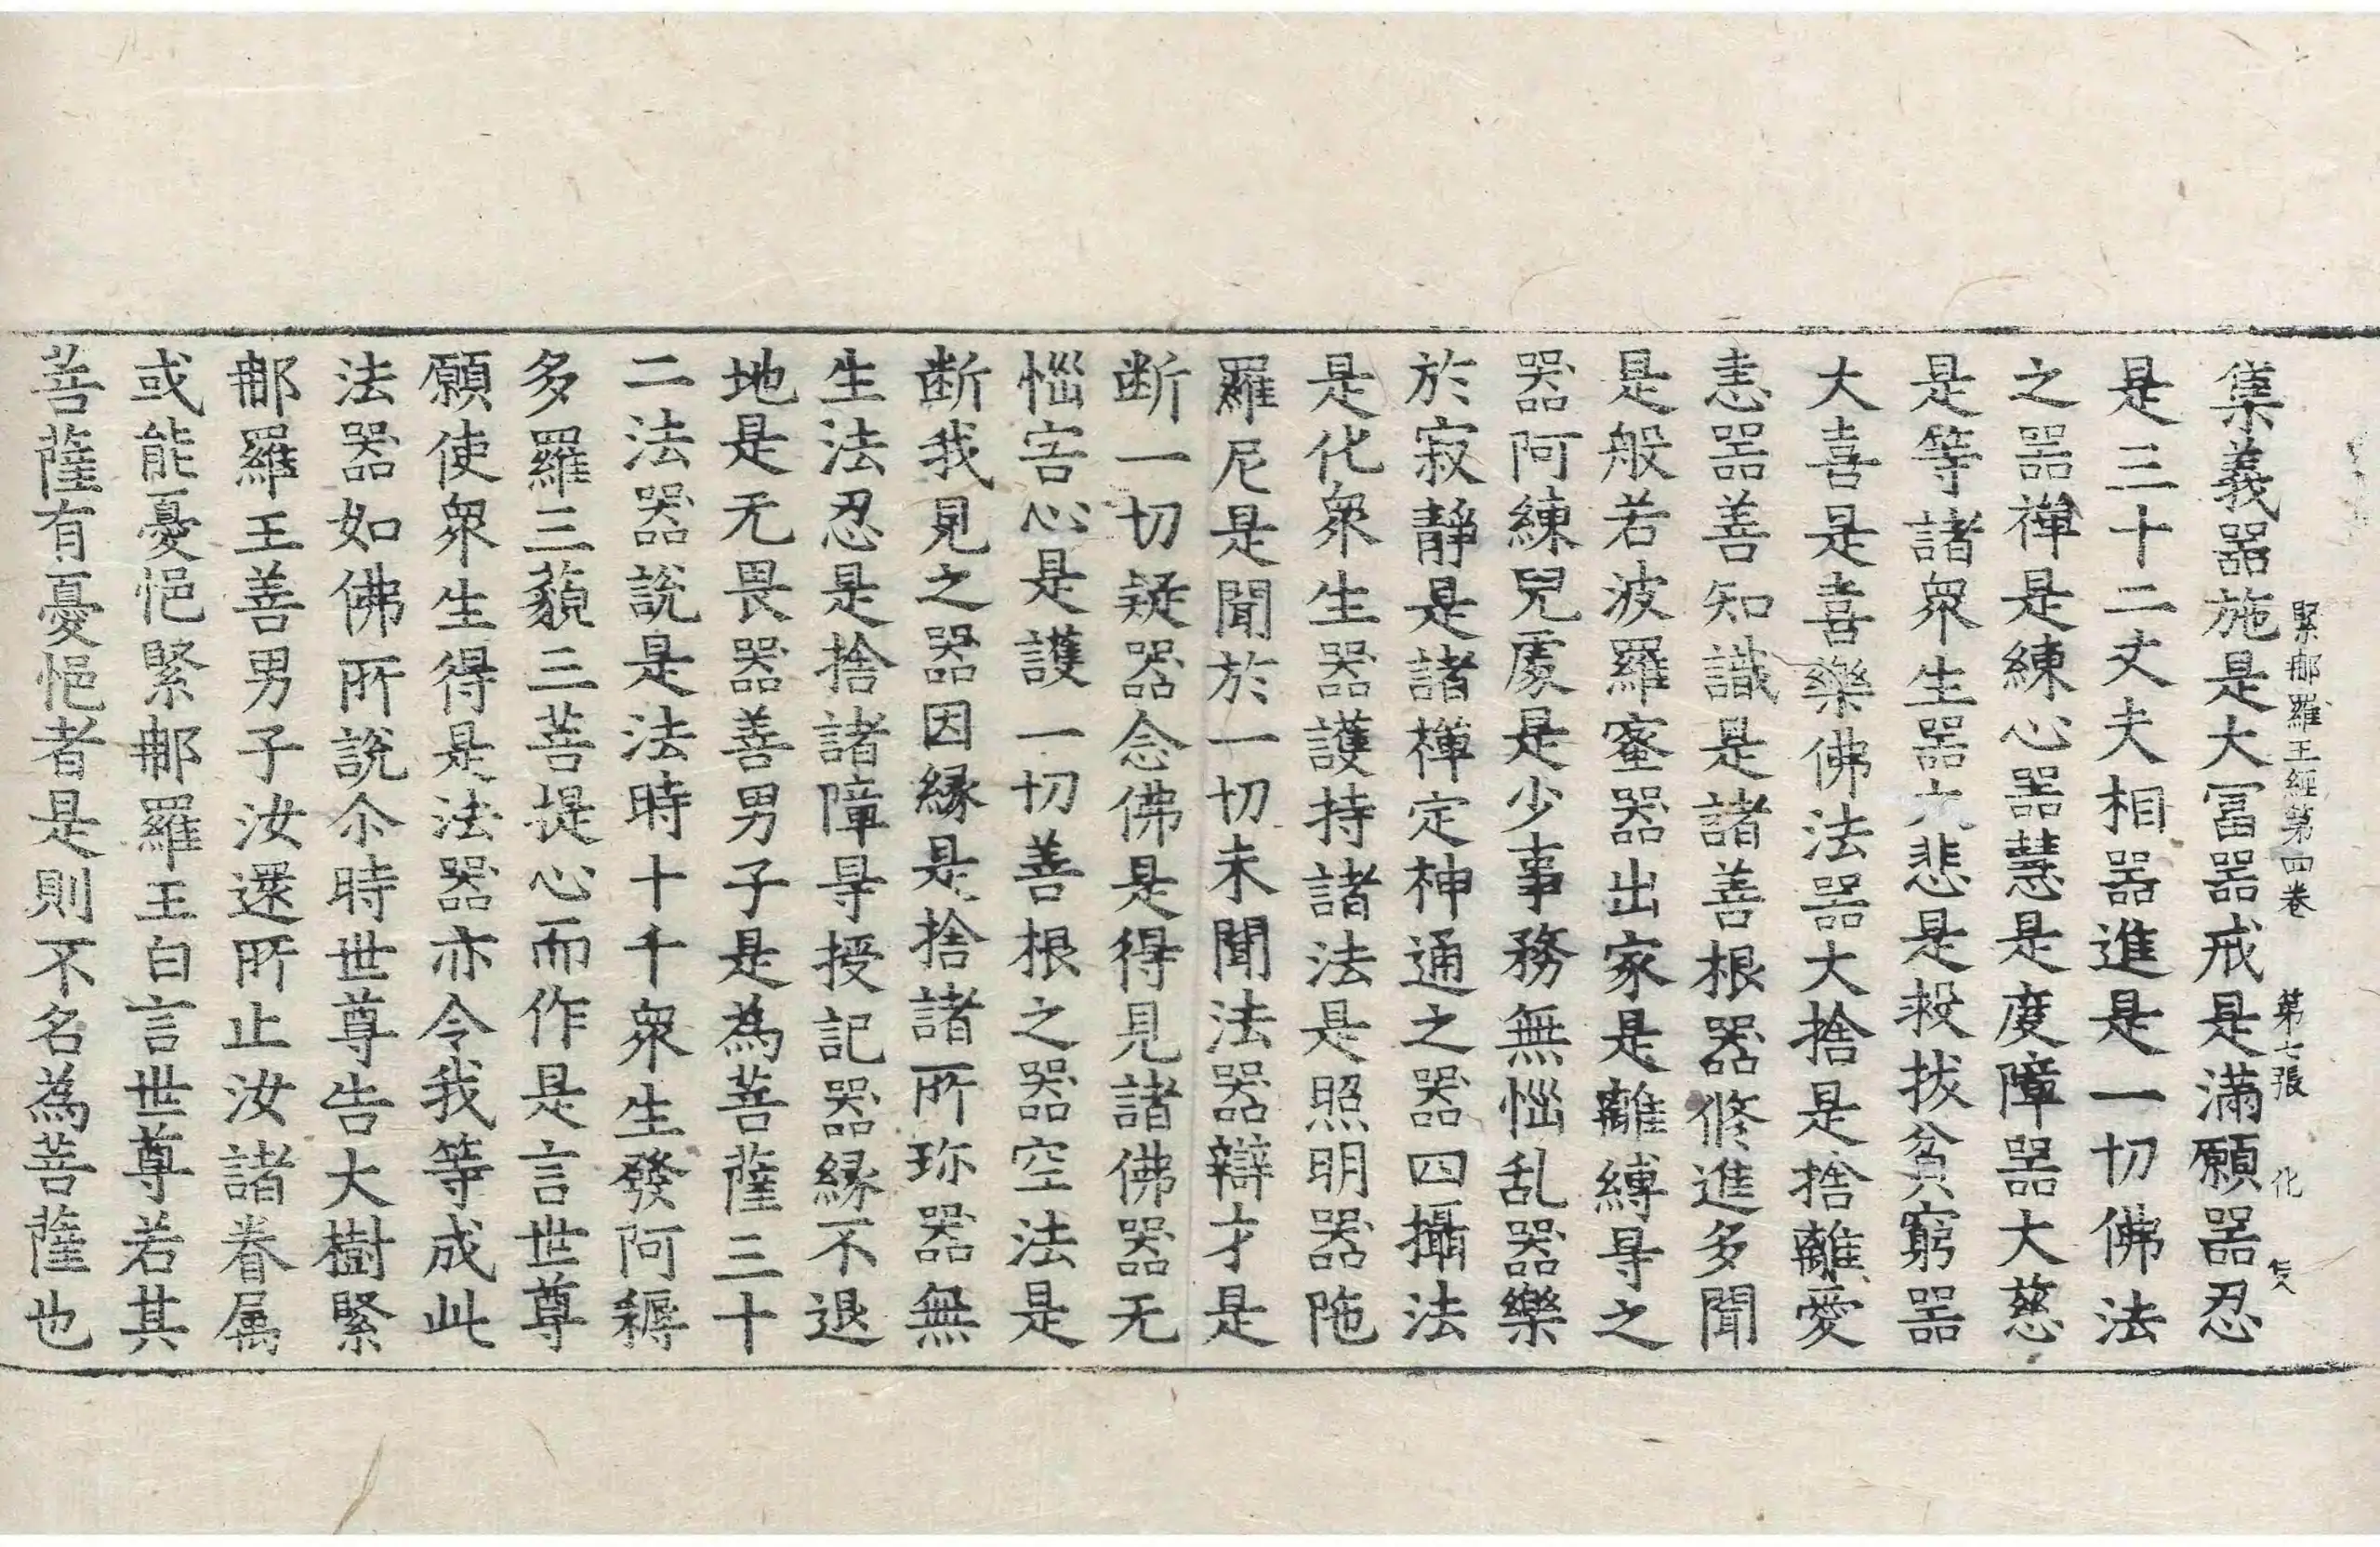 緊𨚗羅王經第四卷　第七張　化
集義器施是大冨器戒是滿願器忍
是三十二丈夫相器進是一切佛法
之器禅是練心器慧是度障器大慈
是等諸衆生器大悲是救拔貧窮器
大喜是喜樂佛法器大捨是捨離愛
恚器善知識是諸善根器修進多聞
是般若波羅蜜器出家是離縛㝵之
器阿練兒處是少事務無惱乱器樂
於寂静是諸禅定神通之器四攝法
是化衆生器護持諸法是照明器陁
羅尼是聞於一切未聞法器辯才是
断一切疑器念佛是得見諸佛器无
惱害心是護一切善根之器空法是
断我見之器因縁是捨諸所珎器無
生法忍是捨諸障㝵授記器縁不退
地是无畏器善男子是為菩薩三十
二法器說是法時十千衆生發阿耨
多羅三藐三菩提心而作是言世尊
願使衆生得是法器亦令我等成此
法器如佛所說尒時世尊告大樹緊
𨚗羅王善男子汝還所止汝諸眷属
或能憂悒緊𨚗羅王白言世尊若其
菩薩有憂悒者是則不名為菩薩也